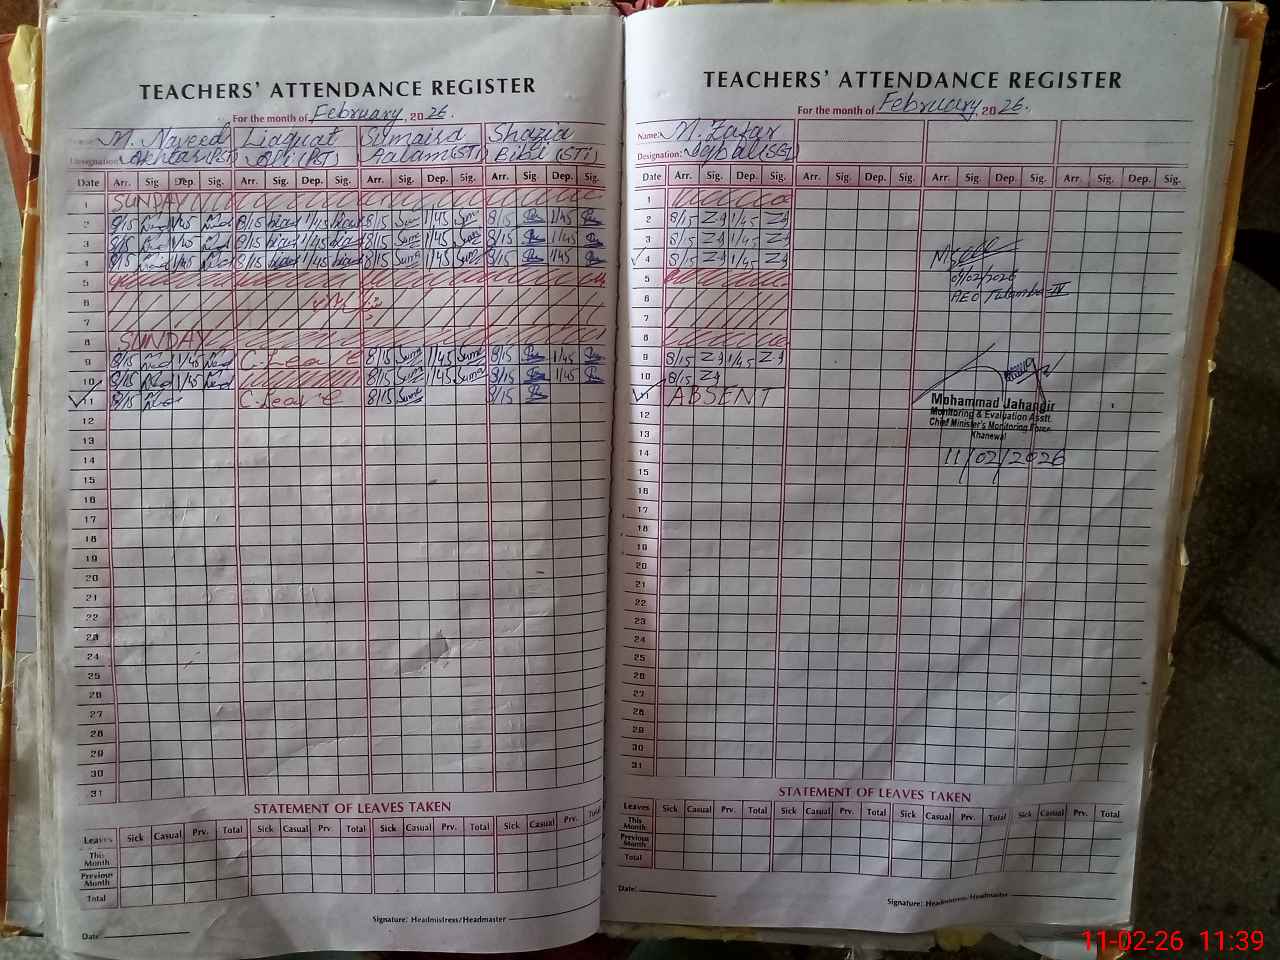 TEACHERS' ATTENDANCE REGISTER
For the month of February, 2026.
Name: M. Naveed Liaquat Sumaira Shazia
Designation: Akhtar (PST) (PST) Aalam (STI) Bibi (STI)
Date Arr. Sig Dep Sig. Arr. Sig. Dep. Sig. Arr. Sig. Dep. Sig. Arr. Sig Dep. Sig.
1 SUNDAY
2 8/15 1/45 8/15 1/45 8/15 1/45 8/15 1/45
3 8/15 1/45 8/15 1/45 8/15 1/45 8/15 1/45
4 8/15 1/45 8/15 1/45 8/15 1/45 8/15 1/45
5
6
7
8 SUNDAY
9 8/15 1/45 C.Leave 8/15 1/45 8/15 1/45
10 8/15 1/45 8/15 1/45 8/15 1/45
11 8/15 C.Leave 8/15 8/15
12
13
14
15
16
17
18
19
20
21
22
23
24
25
26
27
28
29
30
31
STATEMENT OF LEAVES TAKEN
Leaves Sick Casual Prv. Total Sick Casual Prv. Total Sick Casual Prv. Total Sick Casual Prv. Total
This Month
Previous Month
Total
Signature: Headmistress/Headmaster
Date
TEACHERS' ATTENDANCE REGISTER
For the month of February, 2026.
Name: M. Zafar
Designation: Iqbal (SST)
Date Arr. Sig. Dep. Sig. Arr. Sig. Dep. Sig. Arr. Sig. Dep. Sig. Arr. Sig. Dep. Sig.
1
2 8/15 1/45
3 8/15 1/45
4 8/15 1/45
5
6
7
8
9 8/15 1/45
10 8/15
11 ABSENT
12
13
14
15
16
17
18
19
20
21
22
23
24
25
26
27
28
29
30
31
04/02/2026
AEO Tulamba IV
Mohammad Jahangir
Monitoring & Evaluation Asstt.
Chief Minister's Monitoring Force
Khanewal
11/02/2026
STATEMENT OF LEAVES TAKEN
Leaves Sick Casual Prv. Total Sick Casual Prv. Total Sick Casual Prv. Total Sick Casual Prv. Total
This Month
Previous Month
Total
Date:
Signature: Headmistress/Headmaster
11-02-26 11:39